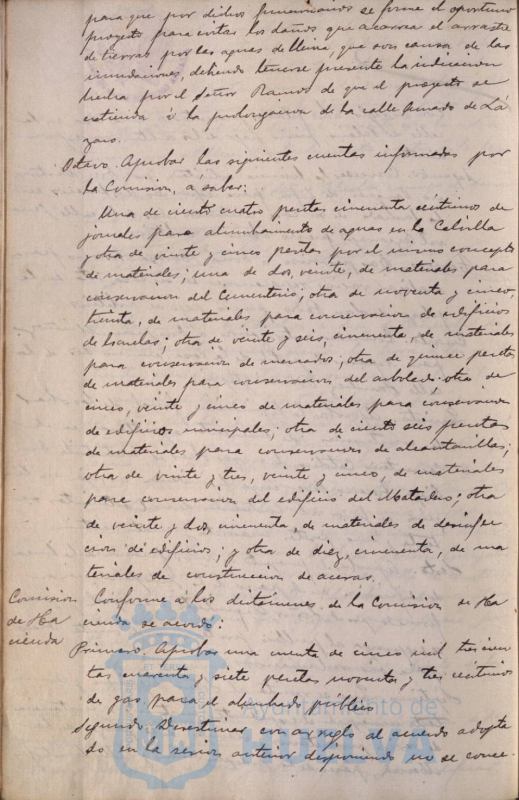 para que por dichos funcionarios se forme el oportuno
proyecto para evitar los daños que acarrea el arrastre
de tierras por las aguas de lluvia, que son causa de las
inundaciones, debiendo tenerse presente la indicacion
hecha por el Señor Ramos de que el proyecto se
estienda á la prolongacion de la calle Amado de Lá
zaro.
Octavo. Aprobar las siguientes cuentas informadas por
la Comision, á saber:
Una de ciento cuatro pesetas cincuenta céntimos de
jornales para alumbramiento de aguas en la Calvilla
y otra de veinte y cinco pesetas por el mismo concepto
de materiales; una de dos, veinte, de materiales para
conservacion del Cementerio; otra de noventa y cinco,
treinta, de materiales para conservacion de edificios
de Escuelas; otra de veinte y seis, cincuenta, de materiales
para conservacion de mercados; otra de quince pesetas
de materiales para conservacion del arbolado; otra de
cinco, veinte y cinco de materiales para conservacion
de edificios municipales; otra de ciento seis pesetas
de materiales para conservacion de alcantarillas;
otra de veinte y tres, veinte y cinco, de materiales
para conservacion del edificio del Matadero; otra
de veinte y dos, cincuenta, de materiales de desinfec
cion de edificios; y otra de diez, cincuenta, de ma
teriales de construccion de aceras.
Comision
de Ha
cienda
Conforme a los dictámenes de la Comision de Ha
cienda se acordó:
Primero. Aprobar una cuenta de cinco mil trescien
tas cuarenta y siete pesetas noventa y tres céntimos
de gas para el alumbrado público
Segundo. Desestimar con arreglo al acuerdo adopta
do en la sesion anterior disponiendo no se conce-
Ayuntamiento de
HUELVA